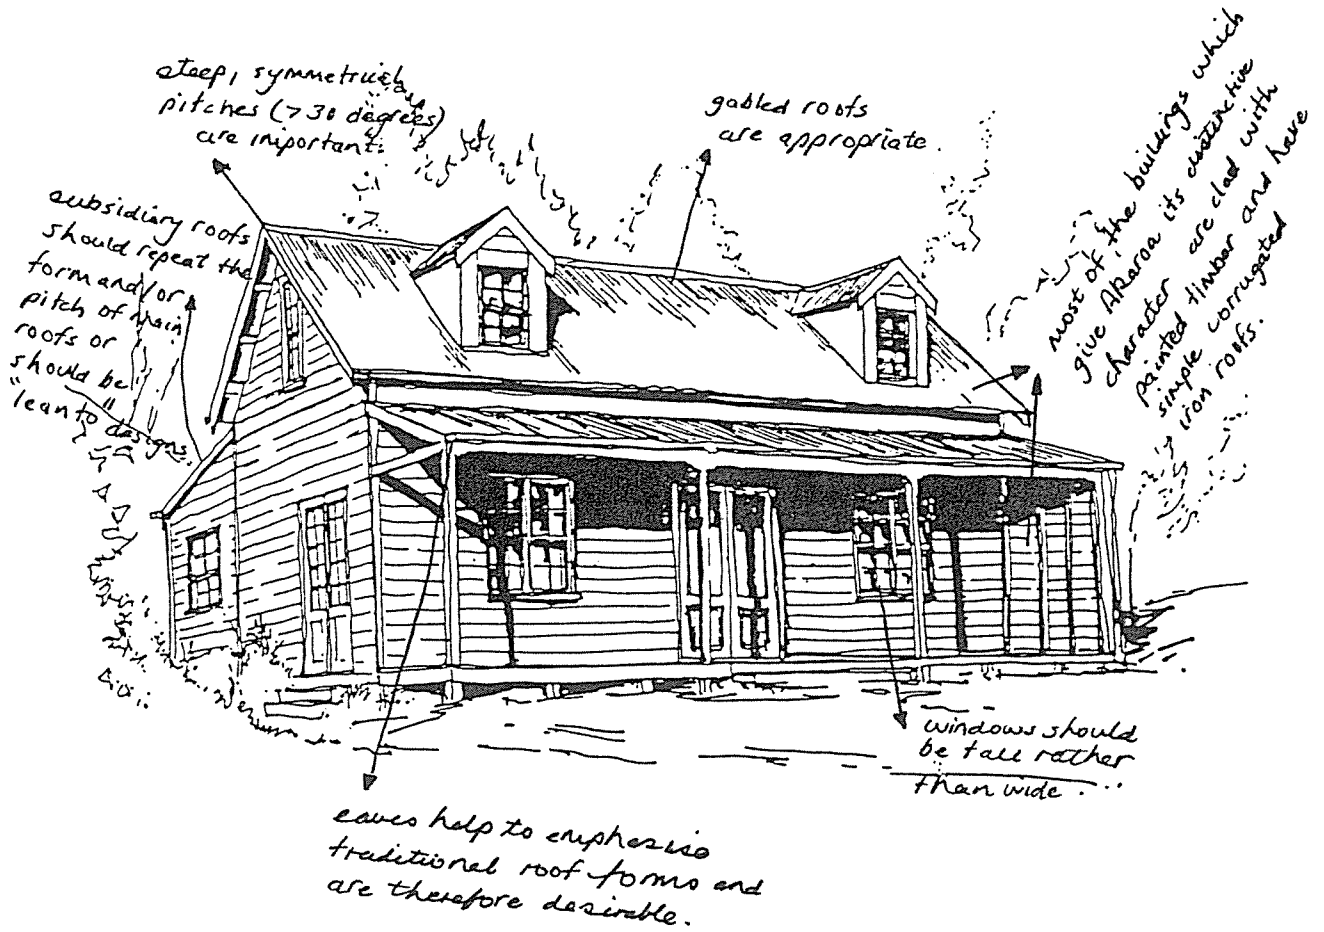 steep, symmetrical
pitches (>30 degrees)
are important.
gabled roofs
are appropriate.
most of the buildings which
give Akaroa its distinctive
character are clad with
painted timber and have
simple corrugated
iron roofs.
subsidiary roofs
should repeat the
form and/or
pitch of main
roofs or
should be
"lean to"
designs.
windows should
be tall rather
than wide...
eaves help to emphasise
traditional roof forms and
are therefore desirable.